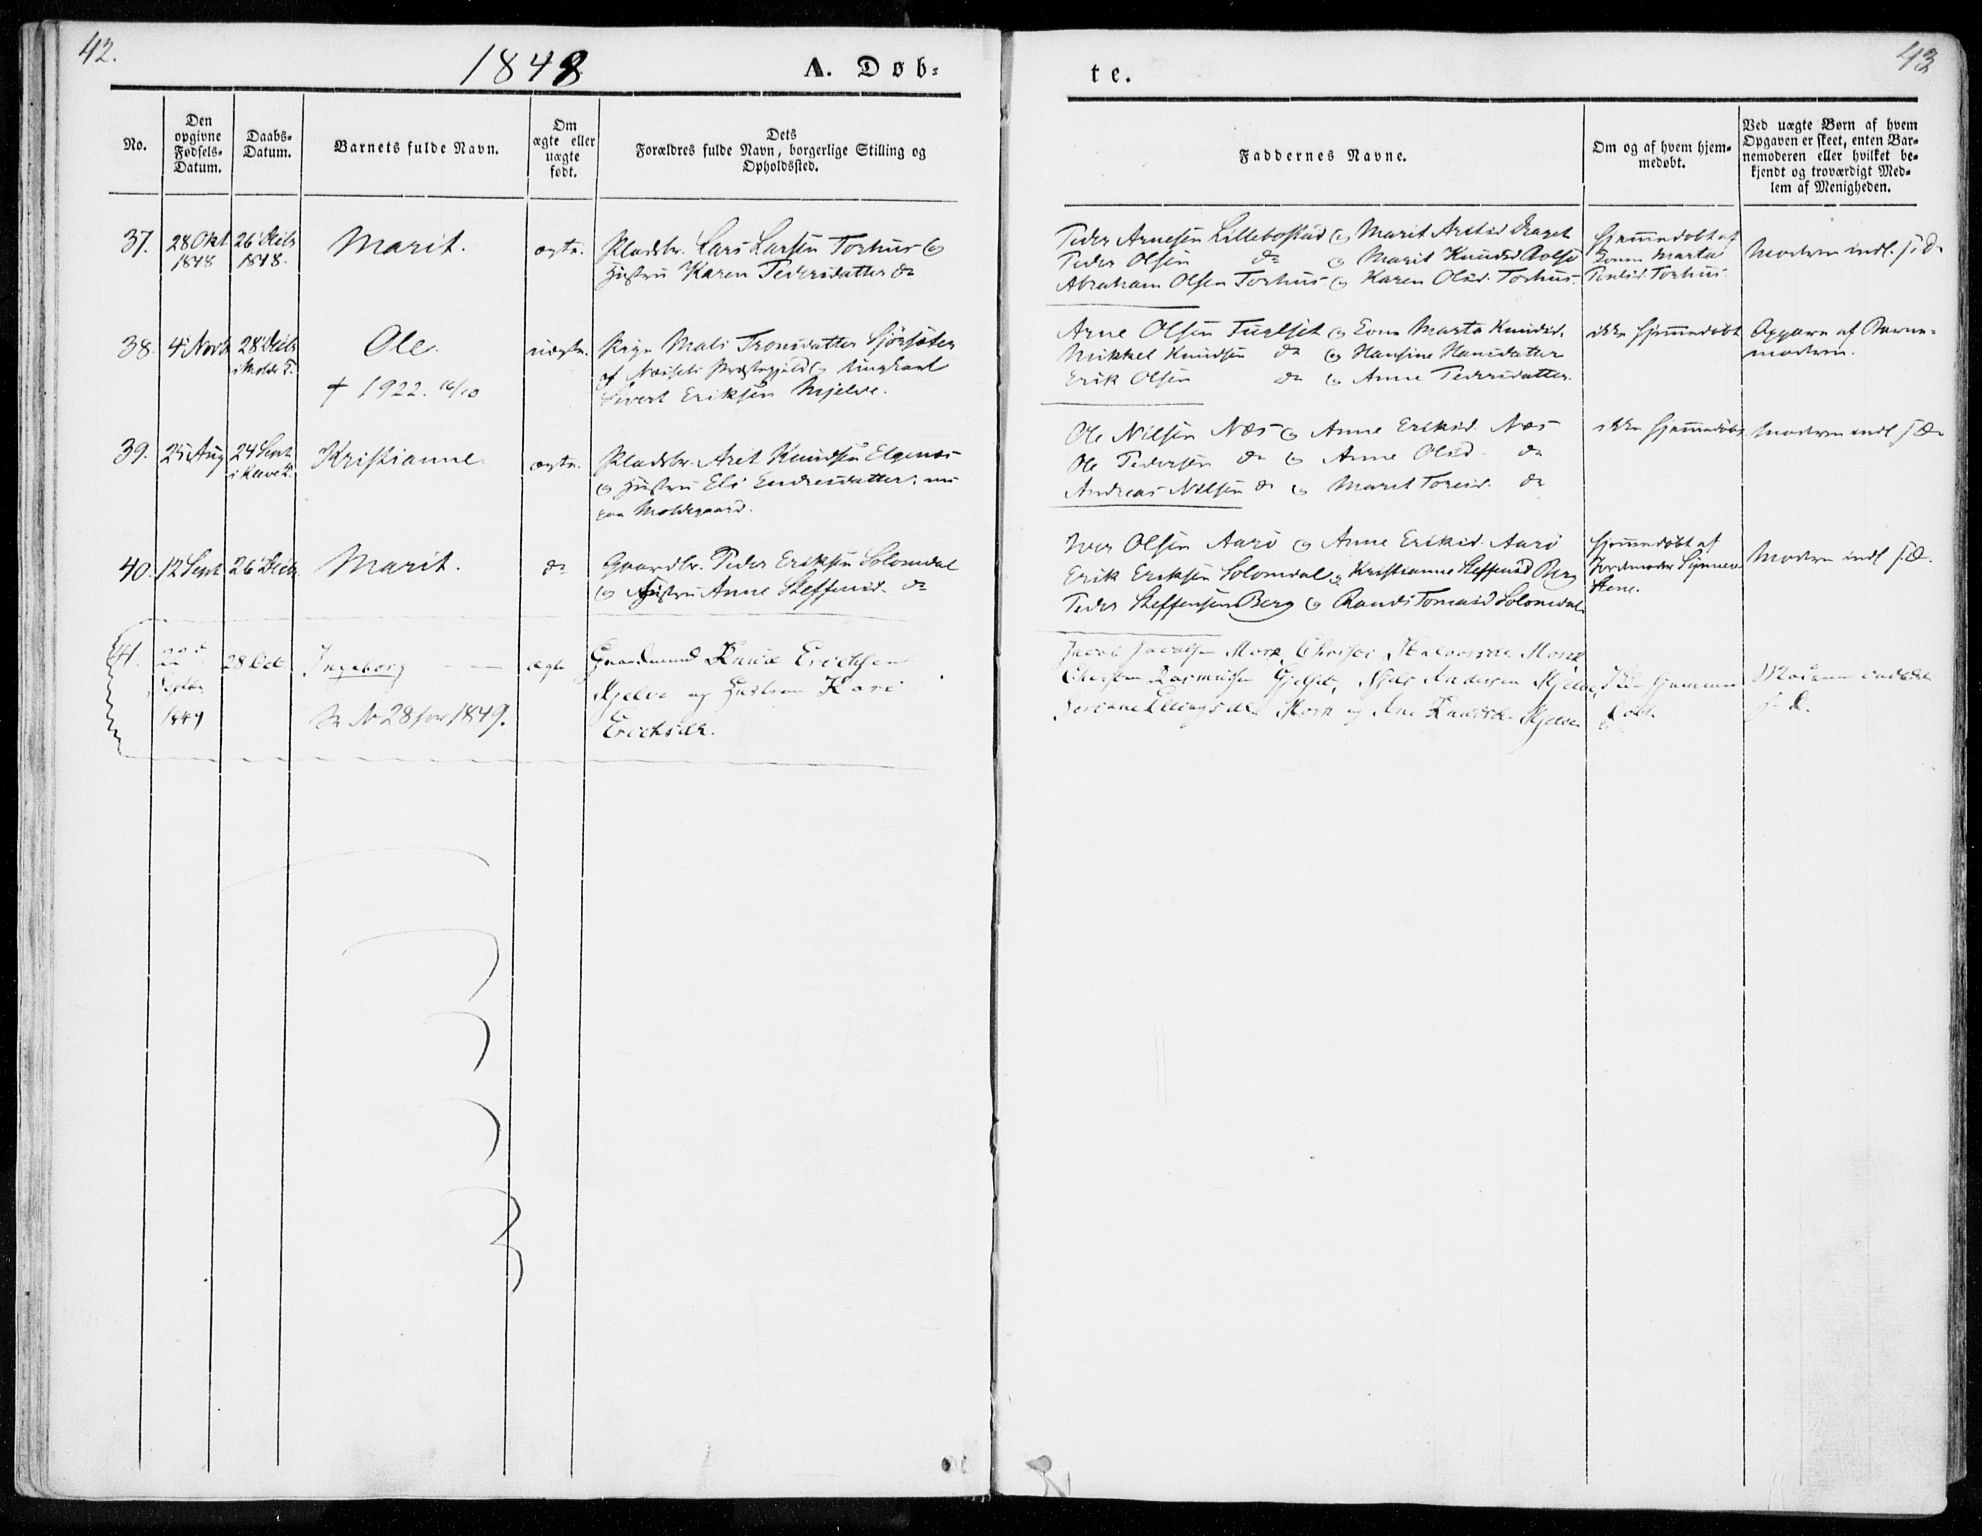 42.
1848
A. Døb-
te.
43
No.
Den
opgivne
Fødsels-
Datum.
Daabs-
Datum.
Barnets fulde Navn.
Om
ægte eller
uægte
født.
Dets
Forældres fulde Navn, borgerlige Stilling og
Opholdssted.
Faddernes Navne.
Om og af hvem hjem-
medøbt.
Ved uægte Børn af hvem
Opgaven er skeet, enten Bar-
nemoderen eller hvilket be-
kjendt og troværdigt Med-
lem af Menigheden.
37.
28 Okt
1848
26 Decbr
1848.
Marit.
ægte.
Pladsbr. Lars Larsen Torhus og
Hustru Karen Pedersdatter do
Peder Arnesen Lillebostad og Marit Draget
Peder Olsen do og Marit Knudsd
Abraham Olsen Torhus og Karen Olsd. Torhus.
hjemmedøbt af
Konen Marta
Torhus.
Moderen indl. f. D.
38.
4 Novb
28 Decbr
i Molde K.
Ole.
† 1922. 16/10
uægte.
Pige Mali Tronsdatter
af Præstegjeld og Ungkarl
Sivert Eriksen Mjelve.
Arne Olsen og Kone Marta Knudsd.
Mikkel Knudsen do og Hansine Hansdatter
Erik Olsen do og Anne Pedersdatter.
ikke hjemmedøbt
Opgaven af Barne-
moderen.
39.
25 Aug
24 Sept
i Kleve K.
Kristianne.
ægte.
Pladsbr. Knudsen Elgenæs
og Hustru Eli Endresdatter, nu
paa Moldegaard.
Ole Nilsen Næs og Anne Eriksd. Næs
Ole Pedersen do og Anne Olsd. do
Andreas Nilsen do og Marit do
ikke hjemmedøbt
Moderen indl f. D.
40.
12 Sept
26 Decbr
Marit.
do
Gaardbr. Peder Eriksen Solemdal
og Hustru Anne Steffensd. do
Iver Olsen Aarø og Anne Eriksd. Aarø
Erik Eriksen Solemdal og Kristianne Steffensd Berg
Peder Steffensen Berg og Randi Tomasd Solemdal.
hjemmedøbt af
Jordmoder
Moderen indl f. D.
41.
Septbr
1849
28 Oct
Ingeborg
Se No 28 for 1849.
ægte
Gaardmand Knud Erichsen
Mjelve og Hustru Kari
Erichsdr.
Jacob Jacobsen
Rasmusen Andersen Mjelve,
og Ane Knudsdr. Mjelve
Ikke hjemme
døbt.
Moderen indledt
f. D.